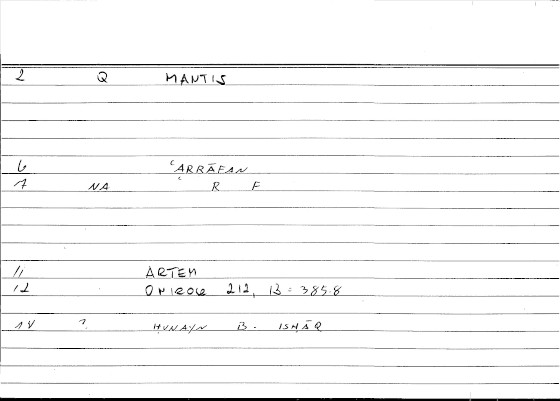 2 Q MANTIS
6 ʿARRĀFAN
7 NA ʿ R F
11 ARTEM
12 ONIROCR 212, B = 385.8
14 ? HUNAYN B. ISHĀQ